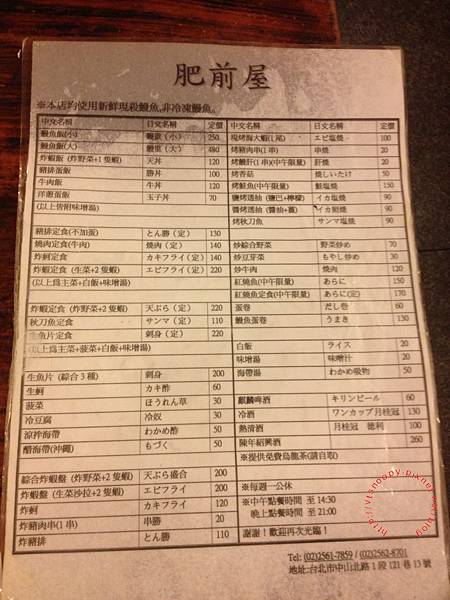 肥前屋
※本店均使用新鮮現殺鰻魚,非冷凍鰻魚。
中文名稱 日文名稱 定價
鰻魚飯(小) 鰻重(小) 250
鰻魚飯(大) 鰻重(大) 480
炸蝦飯 (炸野菜+1隻蝦) 天丼 120
豬排蛋飯 勝丼 100
牛肉飯 牛丼 120
洋蔥蛋飯 玉子丼 70
(以上皆附味增湯)
豬排定食(不加蛋) とん勝(定) 130
燒肉定食(牛肉) 燒肉(定) 140
炸蚵定食 カキフライ(定) 140
炸蝦定食 (生菜+2隻蝦) エビフライ(定) 220
(以上爲主菜+白飯+味增湯)
炸蝦定食 (炸野菜+2隻蝦) 天ぷら(定) 220
秋刀魚定食 サンマ(定) 110
生魚片定食 刺身(定) 220
(以上爲主菜+菠菜+白飯+味增湯)
生魚片 (綜合3種) 刺身 200
生蚵 カキ酢 60
菠菜 ほうれん草 30
冷豆腐 冷奴 30
涼拌海帶 わかめ酢 50
醋海帶(沖繩) もづく 50
綜合炸蝦盤 (炸野菜+2隻蝦) 天ぷら盛合 200
炸蝦盤 (生菜沙拉+2隻蝦) エビフライ 200
炸蚵 カキフライ 120
炸豬肉串(1串) 串勝 20
炸豬排 とん勝 110
中文名稱 日文名稱 定價
現烤海大蝦(1尾) エビ塩燒 100
烤豬肉串(1串) 串燒 20
烤鰻肝(1串)(中午限量) 肝燒
烤香菇 燒しいたけ 50
烤鮭魚(中午限量) 鮭塩燒 150
鹽烤透抽 (鹽巴+檸檬) イカ塩燒 90
醬烤透抽 (醬油+薑) イカ燒 90
烤秋刀魚 サンマ塩燒 90
炒綜合野菜 野菜炒め 70
炒豆芽菜 もやし炒め 30
炒牛肉 燒肉 120
紅燒魚(中午限量) あらに 150
紅燒魚定食(中午限量) あらに(定) 170
蛋卷 だし卷 60
鰻魚蛋卷 うまき 130
白飯 ライス 20
味增湯 味噌汁 20
海帶湯 わかめ吸物 50
麒麟啤酒 キリンビール 60
冷酒 ワンカップ月桂冠 130
熱清酒 月桂冠 德利 100
陳年紹興酒 260
※提供免費烏龍茶(請自取)
※每週一公休
※中午點餐時間 至 14:30
晚上點餐時間 至 21:00
謝謝!歡迎再次光臨!
Tel: (02)2561-7859 / (02)2562-8701
地址:台北市中山北路1段121巷13號